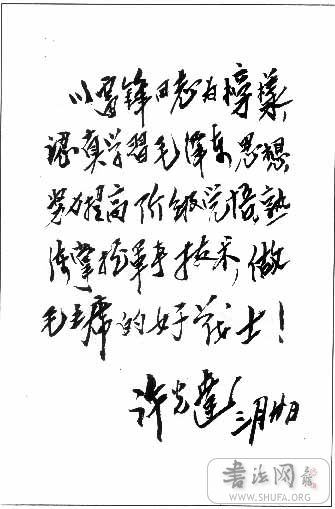 以雷锋同志为榜样，
认真学习毛泽东思想，
努力提高阶级觉悟，熟
练掌握军事技术，做
毛主席的好战士！
许光达
三月廿日
书法网
WWW.SHUFA.ORG